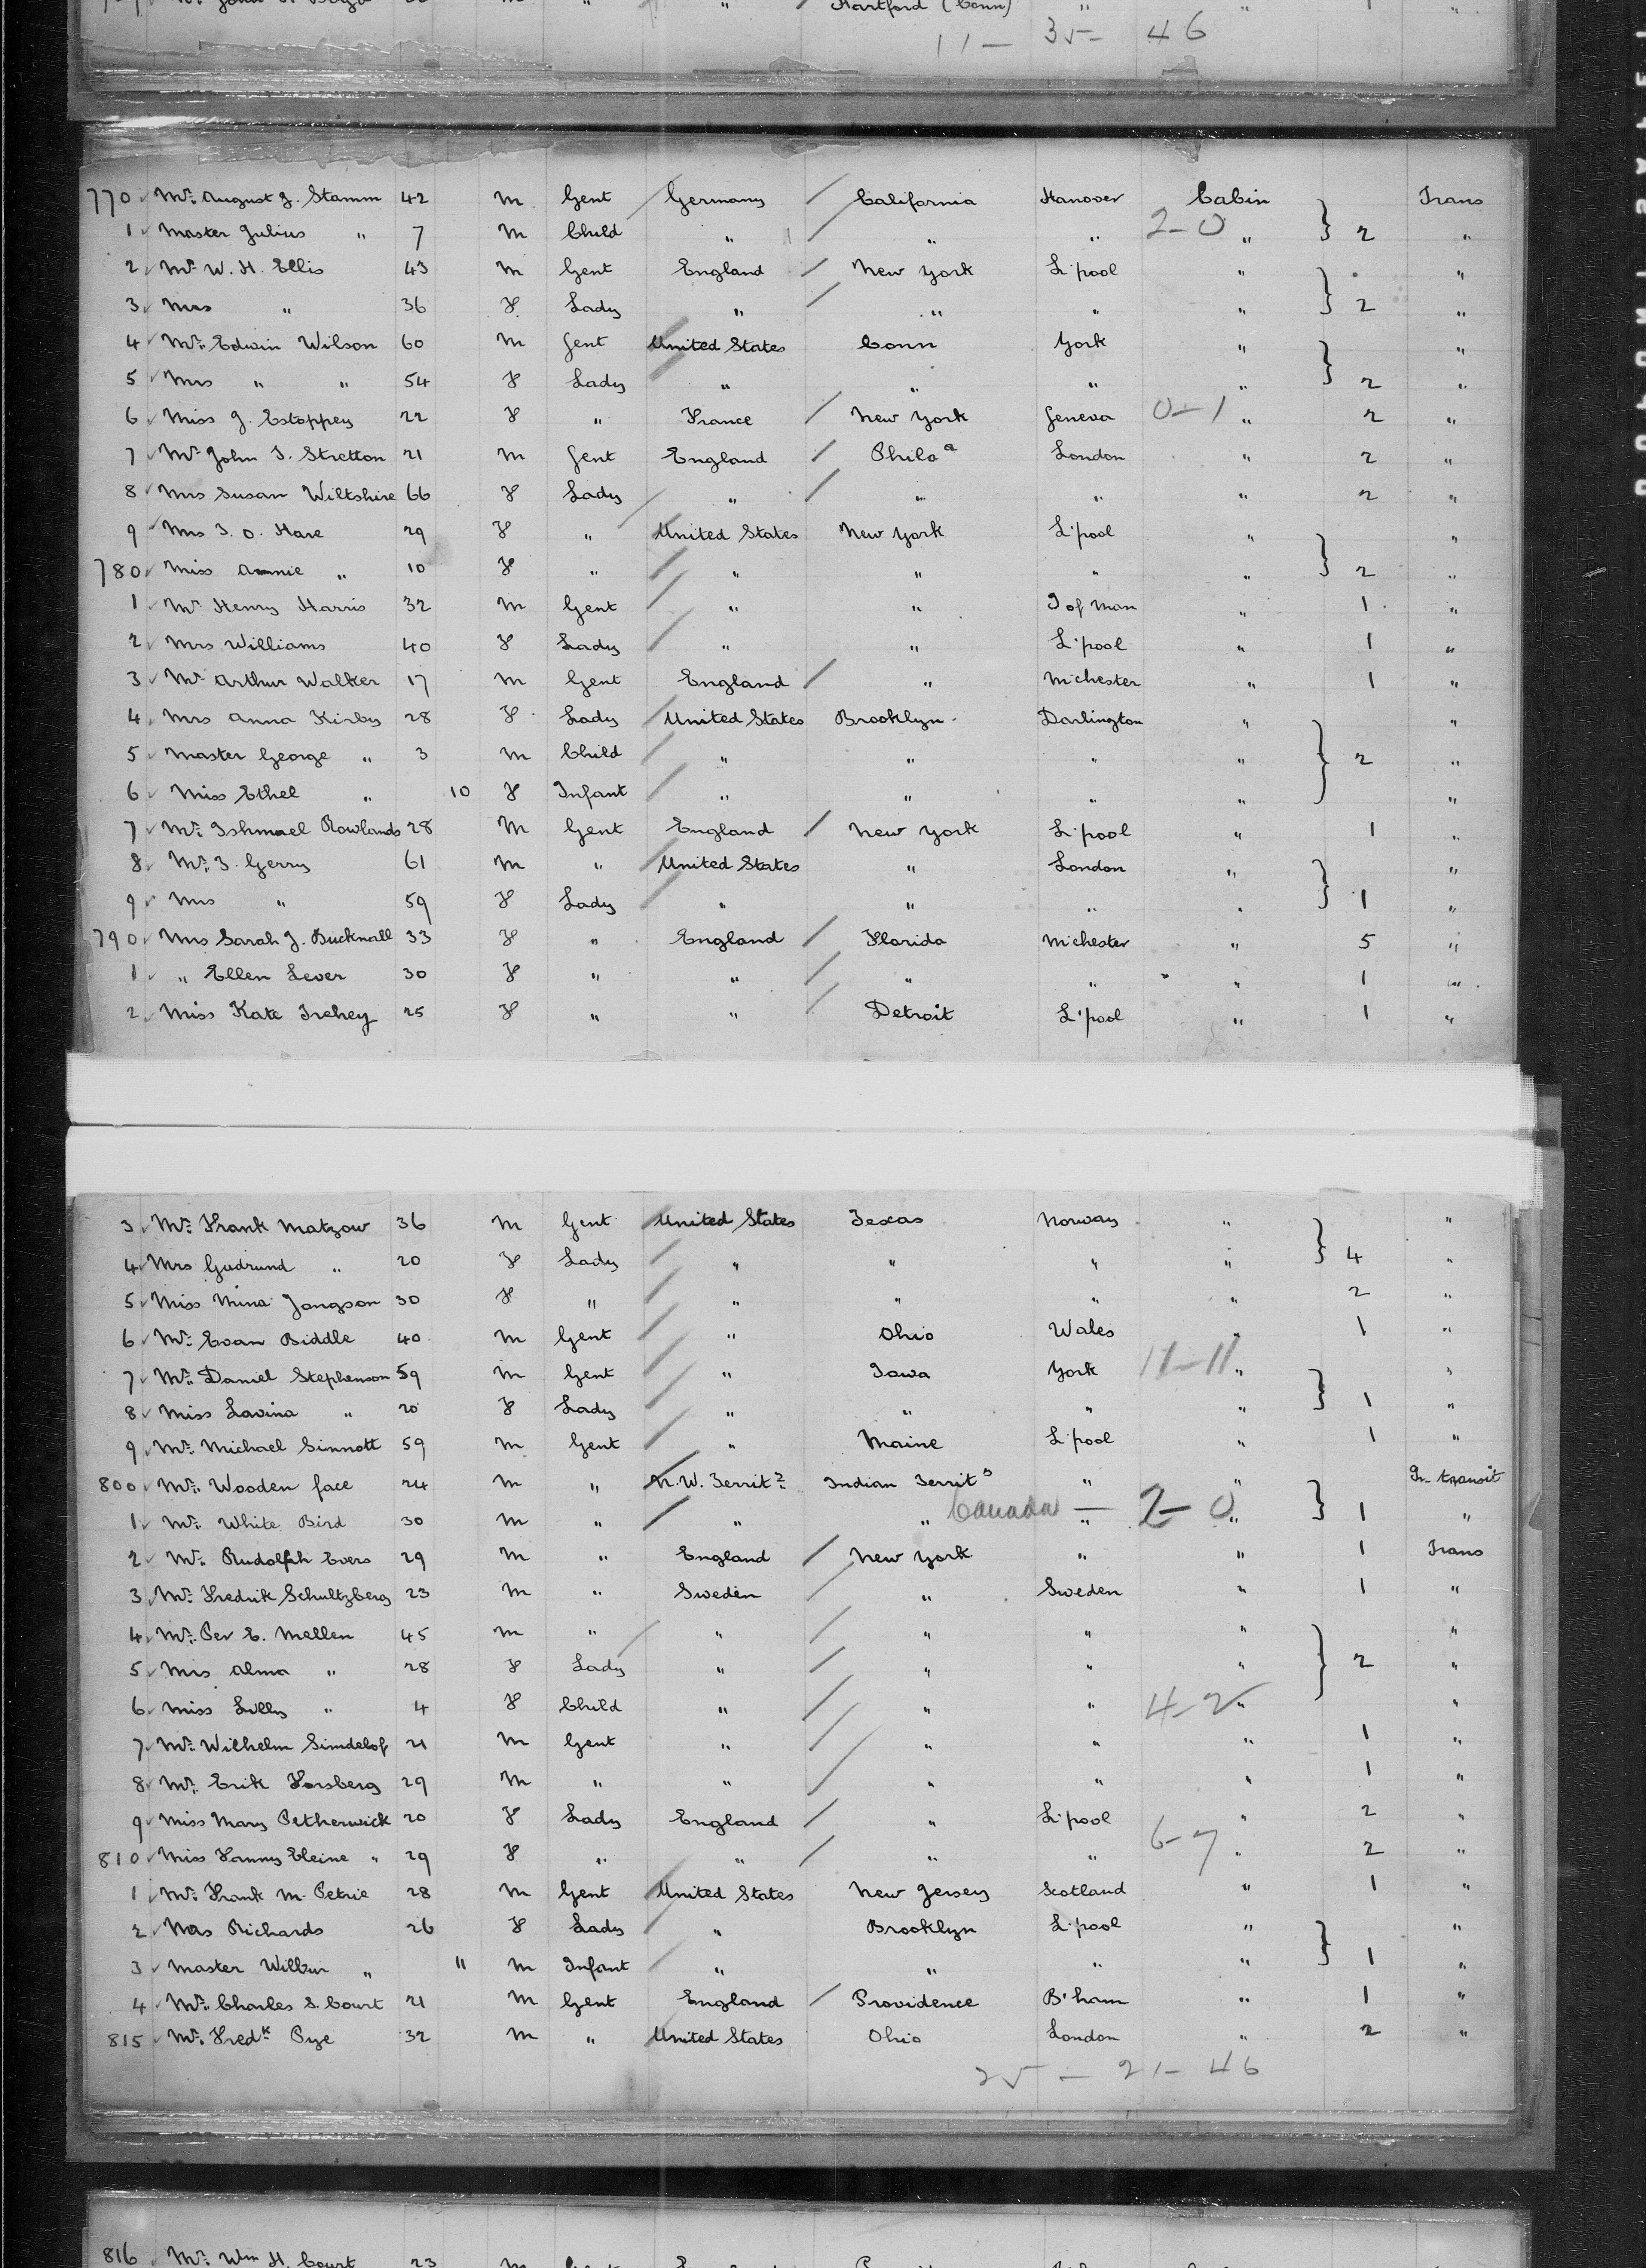 Hartford (Conn) " " 1 "
11 — 35 — 46
770 Mr. August J. Stamm 42 M Gent Germany California Hanover Cabin Trans
1 Master Julius " 7 M Child " " " 2-0 " 2 "
2 Mr. W. H. Ellis 43 M Gent England New York L'pool " "
3 Mrs " 36 F Lady " " " " 2 "
4 Mr. Edwin Wilson 60 M Gent United States Conn York " "
5 Mrs " " 54 F Lady " " " " 2 "
6 Miss J. Estoppey 22 F " France New York Geneva 0-1 " 2 "
7 Mr. John T. Stretton 21 M Gent England Phila London " 2 "
8 Mrs Susan Wiltshire 66 F Lady " " " " 2 "
9 Mrs T. O. Hare 29 F " United States New York L'pool " "
780 Miss Annie " 10 F " " " " " 2 "
1 Mr. Henry Harris 32 M Gent " " I of Man " 1 "
2 Mrs Williams 40 F Lady " " L'pool " 1 "
3 Mr. Arthur Walker 17 M Gent England " M'chester " 1 "
4 Mrs Anna Kirby 28 F Lady United States Brooklyn Darlington " "
5 Master George " 3 M Child " " " " 2 "
6 Miss Ethel " 10 F Infant " " " " "
7 Mr. Ishmael Rowlands 28 M Gent England New York L'pool " 1 "
8 Mr. T. Gerry 61 M " United States " London " "
9 Mrs " 59 F Lady " " " " 1 "
790 Mrs Sarah J. Bucknall 33 F " England Florida M'chester " 5 "
1 " Ellen Lever 30 F " " " " " 1 "
2 Miss Kate Trehey 25 F " " Detroit L'pool " 1 "
3 Mr. Frank Matzow 36 M Gent United States Texas Norway " "
4 Mrs Gudrund " 20 F Lady " " " " 4 "
5 Miss Mina Jongson 30 F " " " " " 2 "
6 Mr. Evan Biddle 40 M Gent " Ohio Wales " 1 "
7 Mr. Daniel Stephenson 59 M Gent " Iowa York 11-11 " "
8 Miss Lavina " 20 F Lady " " " " 1 "
9 Mr. Michael Sinnott 59 M Gent " Maine L'pool " 1 "
800 Mr. Wooden face 24 M " N.W. Territ. Indian Territ. " " In transit
1 Mr. White Bird 30 M " " " Canada — " 2-0 " 1 "
2 Mr. Rudolph Evers 29 M " England New York " " 1 Trans
3 Mr. Fredrik Schultzberg 23 M " Sweden " Sweden " 1 "
4 Mr. Per E. Mellen 45 M " " " " " "
5 Mrs Alma " 28 F Lady " " " " 2 "
6 Miss Lilly " 4 F Child " " " 4-2 " "
7 Mr. Wilhelm Simdelof 21 M Gent " " " " 1 "
8 Mr. Erik Forsberg 29 M " " " " " 1 "
9 Miss Mary Petherwick 20 F Lady England " L'pool " 2 "
810 Miss Fanny Eleine " 29 F " " " " 6-7 " 2 "
1 Mr. Frank M. Petrie 28 M Gent United States New Jersey Scotland " 1 "
2 Mrs Richards 26 F Lady " Brooklyn L'pool " "
3 Master Wilbur " 11 M Infant " " " " 1 "
4 Mr. Charles S. Court 21 M Gent England Providence B'ham " 1 "
815 Mr. Fredk Pye 32 M " United States Ohio London " 2 "
25 — 21 — 46
816 Mr. Wm H. Court 23